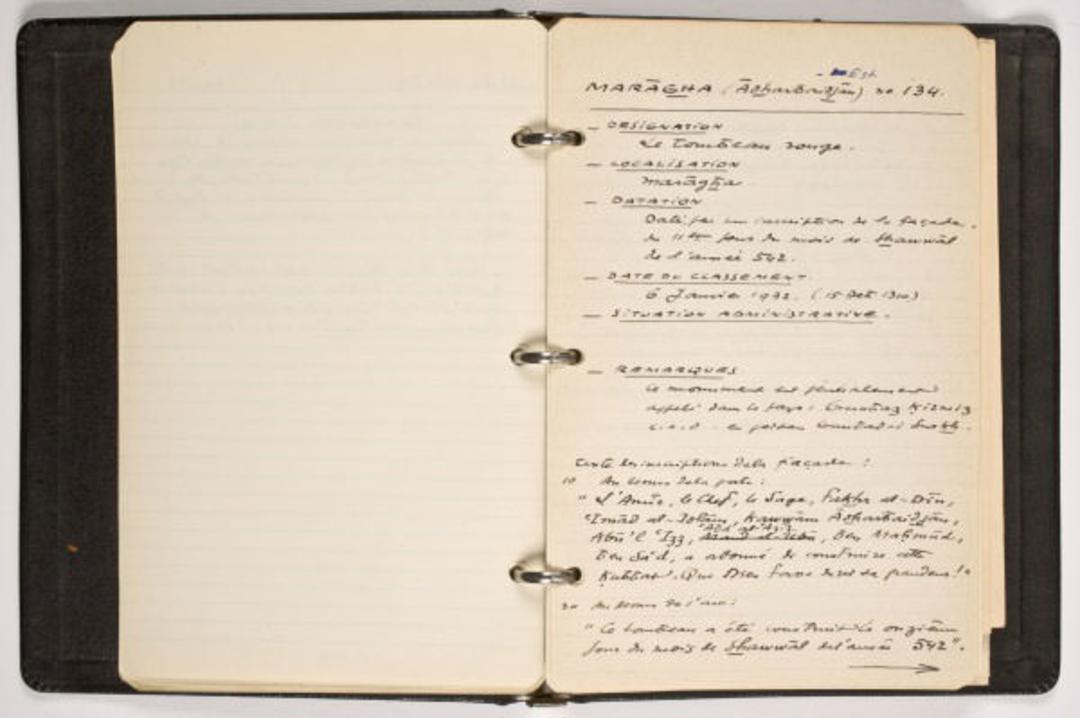 - Est
MARĀGHA (Ādharbaidjān) no 134.
— DÉSIGNATION
Le tombeau rouge.
— LOCALISATION
Marāgha
— DATATION
Daté par un inscription de la façade,
du 11ème jour du mois de Shawwāl
de l'année 542.
— DATE DU CLASSEMENT
6 Janvier 1932. (15 Deï 1310)
— SITUATION ADMINISTRATIVE.
— REMARQUES
Ce monument est généralement
appelé dans le pays : Gounbaz Kirmiz
c.a.d. en persan Gounbad-i Surkh.
Texte des inscriptions de la façade :
1° Au dessus de la porte :
"L'Amīr, le Chef, le Sage, Fakhr al-Dīn,
'Imād al-Islām, Kawwām Ādharbaidjān,
'Abd al-'Azīz
Abū'l 'Izz, Ben Mahmūd,
Ben Sa'd, a ordonné de construire cette
Kubbat. Que Dieu fasse durer sa grandeur!"
2° Au dessus de l'arc :
"Ce tombeau a été construit le onzième
jour du mois de Shawwāl de l'année 542".